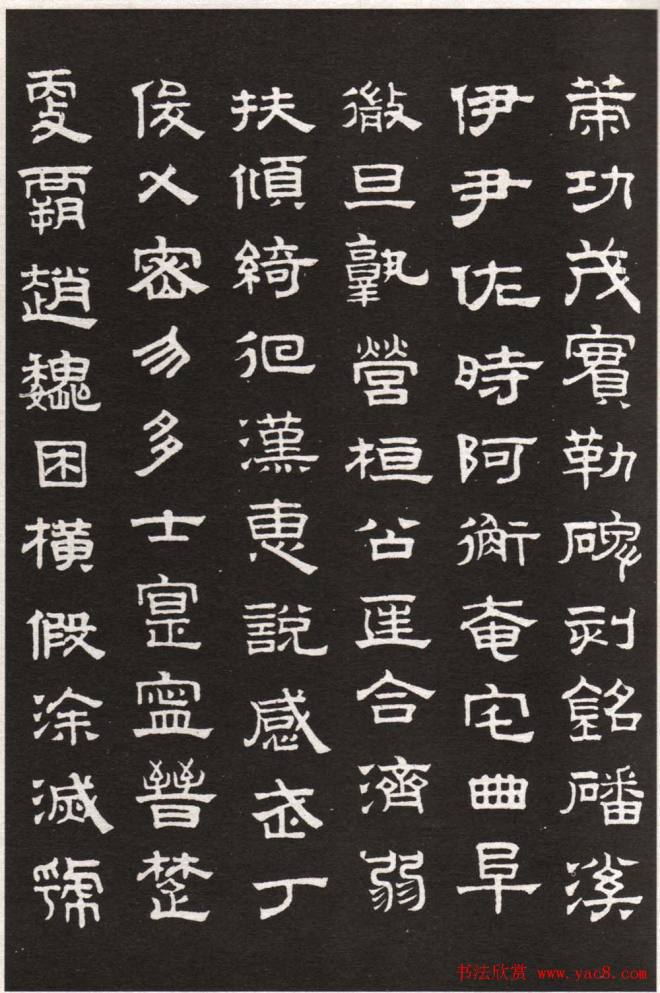 策功茂實勒碑刻銘磻溪
伊尹佐時阿衡奄宅曲阜
微旦孰營桓公匡合濟弱
扶傾綺回漢惠說感武丁
俊乂密勿多士寔寧晉楚
更霸趙魏困橫假涂滅虢
书法欣赏 www.yac8.com